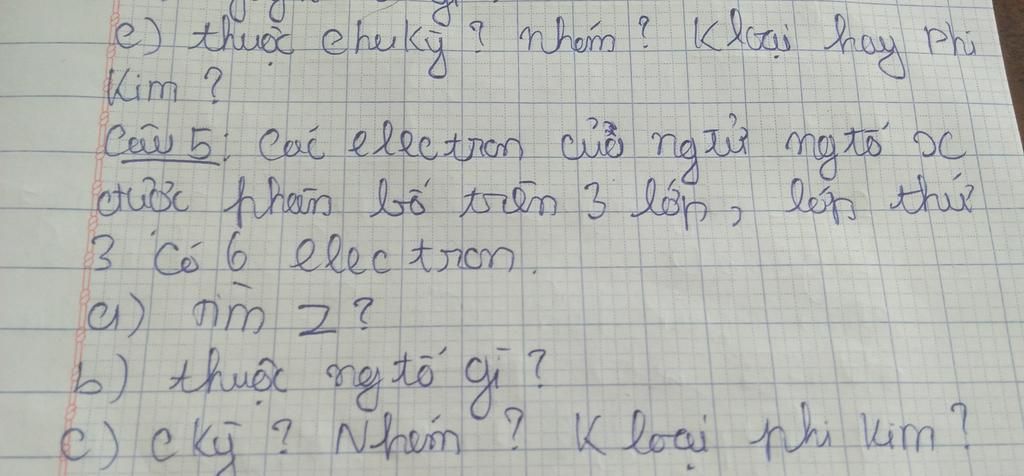 c) thuộc chu kỹ? Nhóm? K loại hay phi
kim?
Câu 5: Các electron của ng tử ng tố x
được phân bố trên 3 lớp, lớp thứ
3 có 6 electron.
a) Tìm Z?
b) thuộc ng tố gì?
c) c kỹ? Nhóm? K loại phi kim?